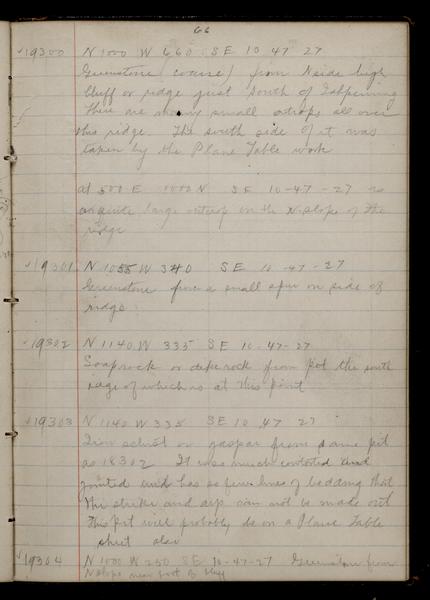 66
19300 N 1000 W 660 SE 10-47-27
Greenstone (coarse) from N side high
bluff or ridge just south of Ishpeming
There are many small outcrops all over
this ridge. The south side of it was
taken by the Plane Table work
at 500 E 1000 N SE 10-47-27 is
a quite large outcrop on the N slope of the
ridge
19301 N 1055 W 340 SE 10-47-27
Greenstone from a small spur on side of
ridge
19302 N 1140 W 335 SE 10-47-27
Soaprock or dike rock from pit the south
edge of which is at this point
19303 N 1140 W 335 SE 10 47 27
Iron schist or gaspar from same pit
as 19302 It was much contorted and
jointed and has so few lines of bedding that
the strike and dip can not be made out
This pit will probably be on a Plane Table
sheet also
19304 N 1000 W 250 SE 10-47-27 Greenstone from
N slope near foot of bluff